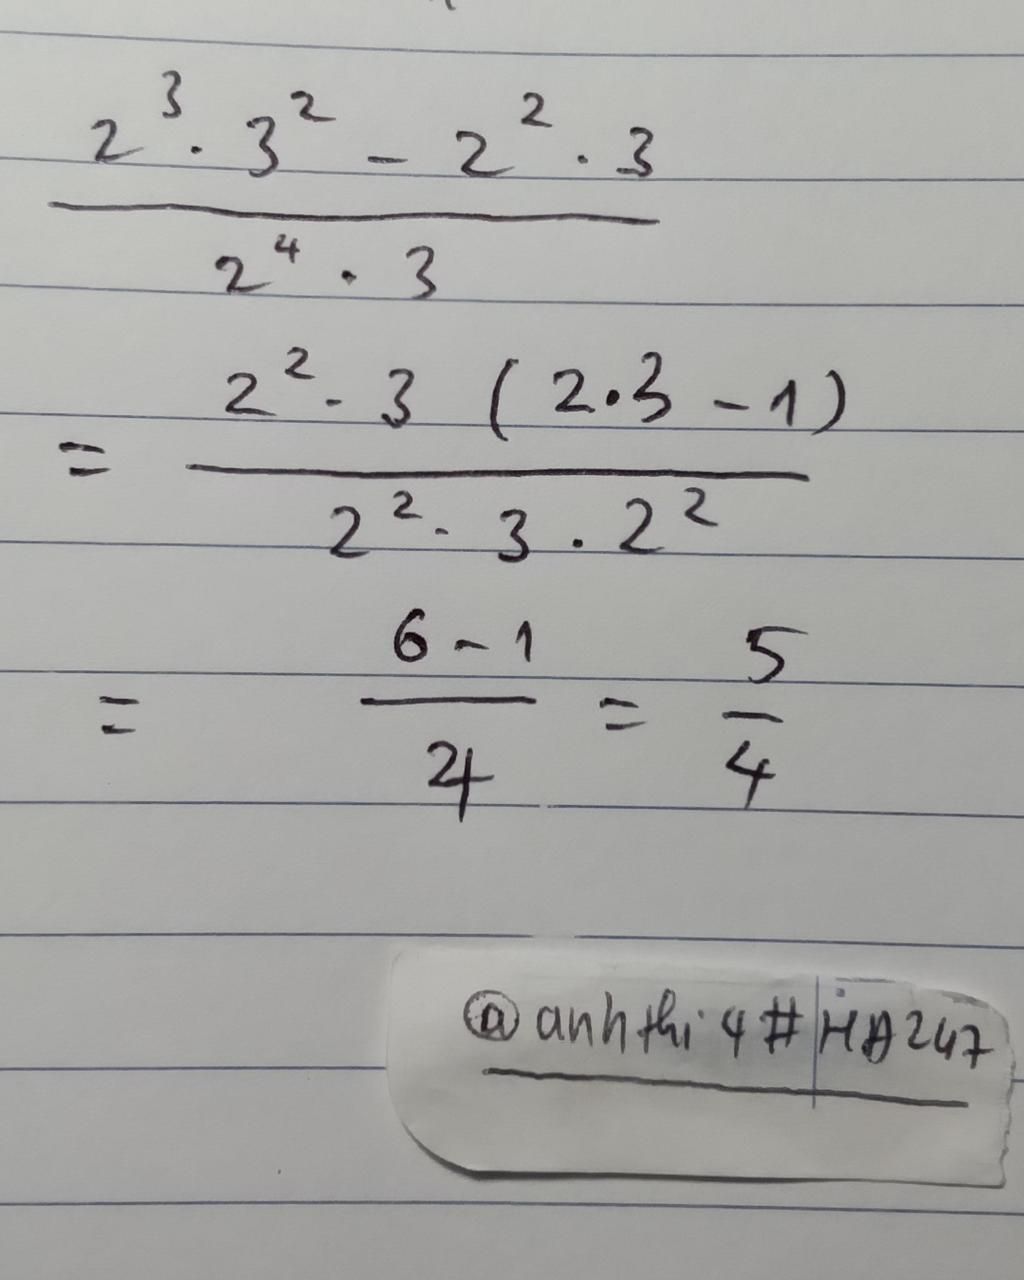 2³ · 3² - 2² · 3
2⁴ · 3
= 2² · 3 ( 2·3 - 1 )
2² · 3 · 2²
= 6 - 1 = 5
4 4
@anhthi4#HA247